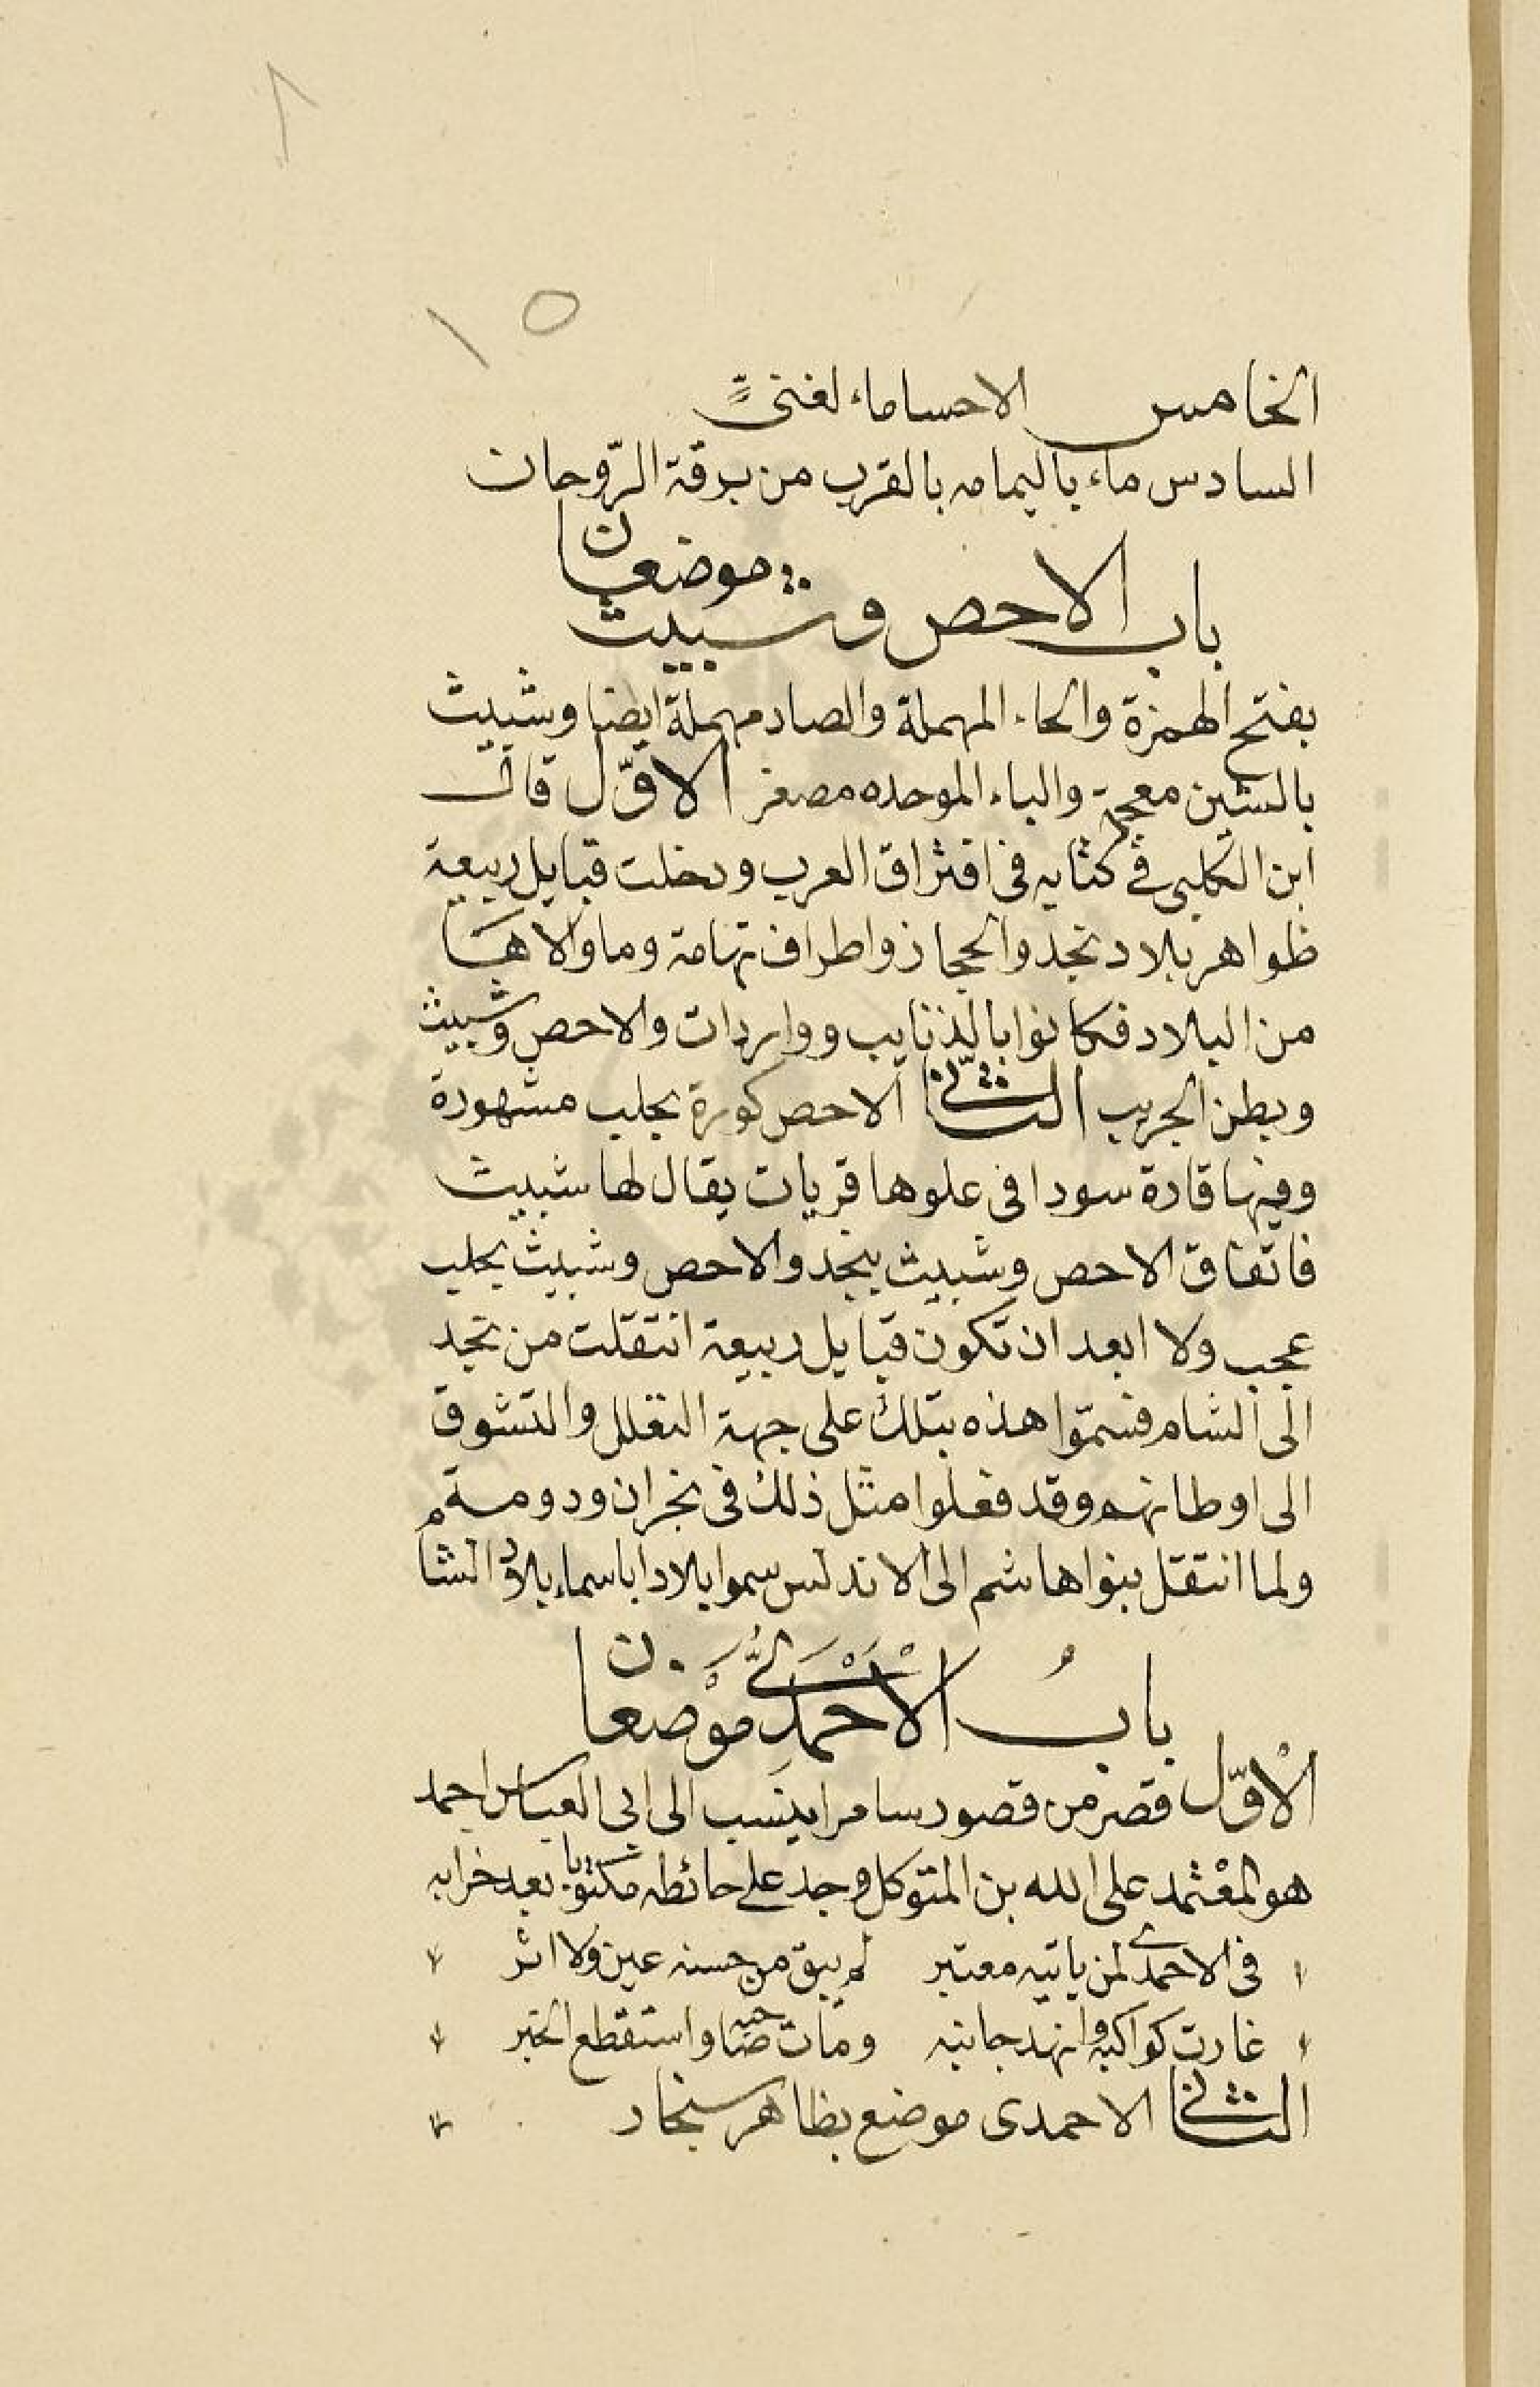 ٨
١٥
الخامس الاحساماء لغنىٍّ
السادس ماء باليمامه بالقرب من برقة الرّوحان
باب الاحص وشبيث موضعان
بفتح الهمزة والحاء المهملة والصاد مهملة ايضا وشبيث
بالشين معجمة والباء الموحده مصغر الاوّل قال
ابن الكلبى فى كتابه فى افتراق العرب ودخلت قبايل ربيعة
ظواهر بلاد نجد والحجاز واطراف تهامة وما والاها
من البلاد فكانوا بالذنايب وواردات والاحص وشبيث
وبطن الجريب الثانى الاحص كورة بحلب مشهورة
وفيها قارة سودا فى علوها قريات يقال لها شبيث
فاتفاق الاحص وشبيث بنجد والاحص وشبيث بحلب
عجب ولا ابعد ان تكون قبايل ربيعة انتقلت من نجد
الى الشام فسمّوا هذه بتلك على جهة التعلل والتشوق
الى اوطانهم وقد فعلوا مثل ذلك فى نجران ودومة
ولما انتقل بنوا هاشم الى الاندلس سموا بلادا باسماء بلاد الشام
بابُ الْاَحْمَدِىُّ مَوْضعان
الْاوّل قصر من قصور سامرا ينسب الى ابى العباس احمد
هو المعْتمد على الله بن المتوكل وجد على حائطه مكتوبا بعد خرابه
فى الاحمدى لمن ياتيه معتبر لم يبق من حسنه عين ولا اثر
غارت كواكبه وانهد جانبه ومات صاحبه واستقطع الخبر
الثانى الاحمدى موضع بظاهر سنجار